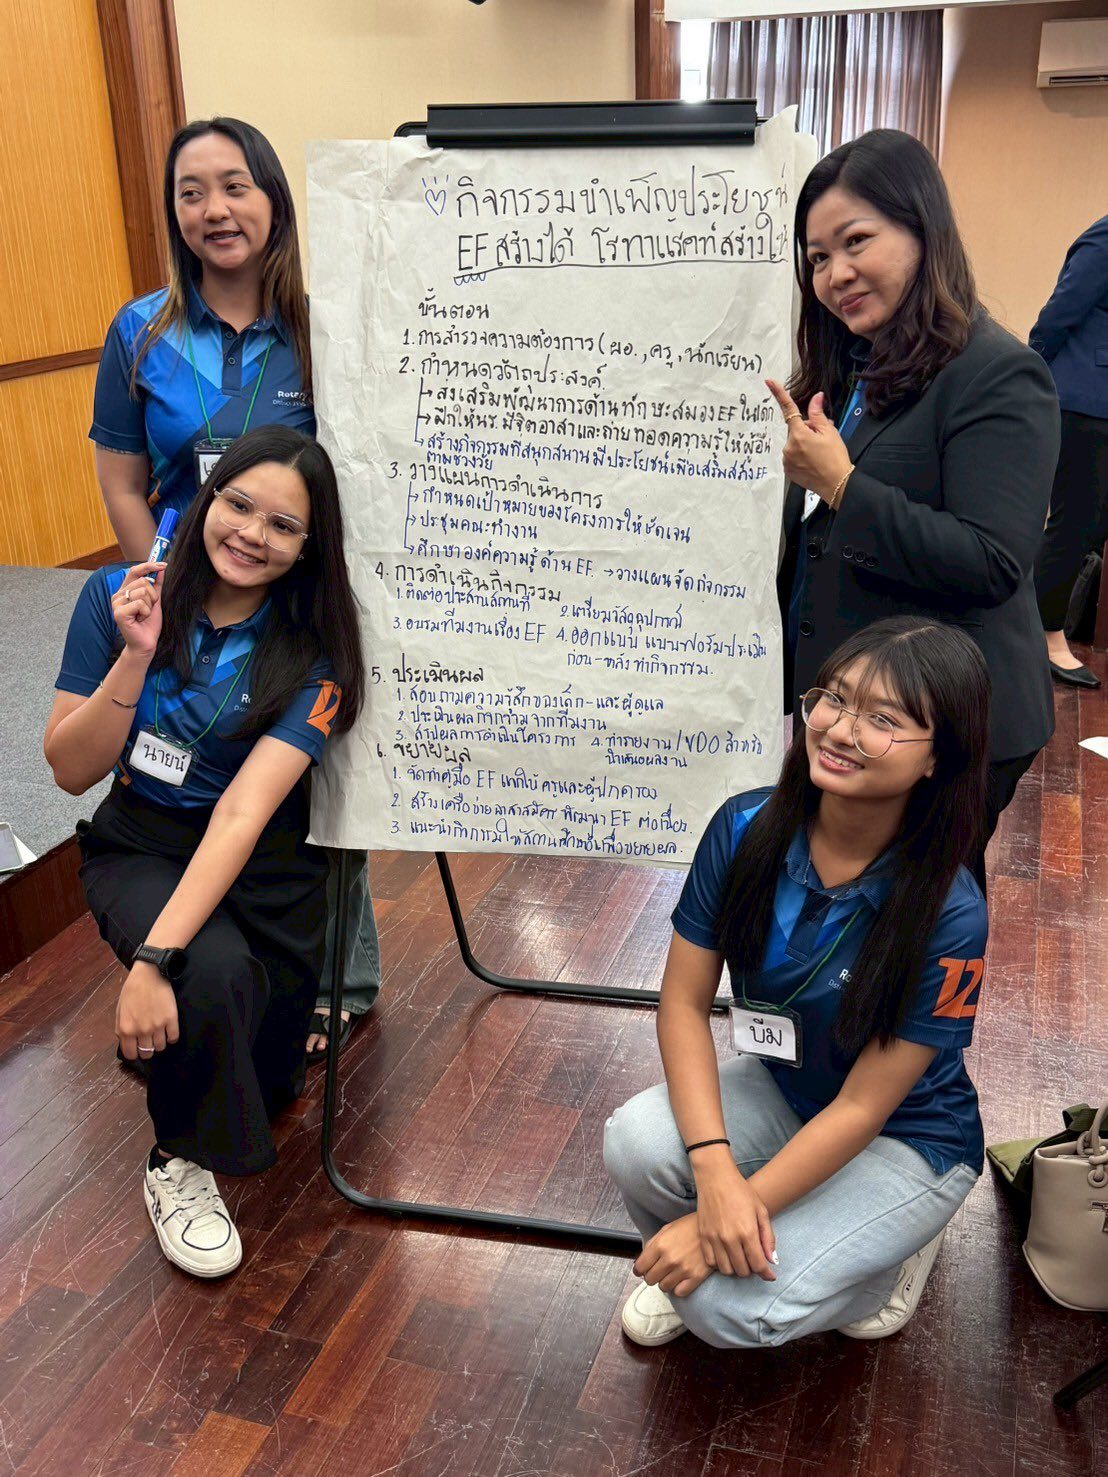 กิจกรรมบำเพ็ญประโยชน์
EF สร้างได้ โรทาแรคท์สร้างให้
ขั้นตอน
1. การสำรวจความต้องการ (ผอ., ครู, นักเรียน)
2. กำหนดวัตถุประสงค์
↳ ส่งเสริมพัฒนาการด้านทักษะสมอง EF ในเด็ก
↳ ฝึกให้นร. มีจิตอาสาและถ่ายทอดความรู้ให้ผู้อื่น
↳ สร้างกิจกรรมที่สนุกสนานมีประโยชน์เพื่อเสริมสร้าง EF
ตามช่วงวัย
3. วางแผนการดำเนินการ
↳ กำหนดเป้าหมายของโครงการให้ชัดเจน
↳ ประชุมคณะทำงาน
↳ ศึกษาองค์ความรู้ด้าน EF. → วางแผนจัดกิจกรรม
4. การดำเนินกิจกรรม
1. ติดต่อประสานสถานที่ 2. เตรียมวัสดุอุปกรณ์
3. อบรมทีมงานเรื่อง EF 4. ออกแบบ แบบฟอร์มประเมิน
ก่อน-หลัง ทำกิจกรรม.
5. ประเมินผล
1. สอบถามความรู้สึกของเด็ก - และผู้ดูแล
2. ประเมินผลกิจกรรมจากทีมงาน
3. สรุปผลการดำเนินโครงการ 4. ทำรายงาน / VDO สำหรับ
นำเสนอผลงาน
6. ขยายผล
1. จัดทำคู่มือ EF แจกให้ครูและผู้ปกครอง
2. สร้างเครือข่ายอาสาสมัคร พัฒนา EF ต่อเนื่อง
3. แนะนำกิจกรรมให้สถานศึกษาอื่นเพื่อขยายผล.
นายน์
บีม
12
12